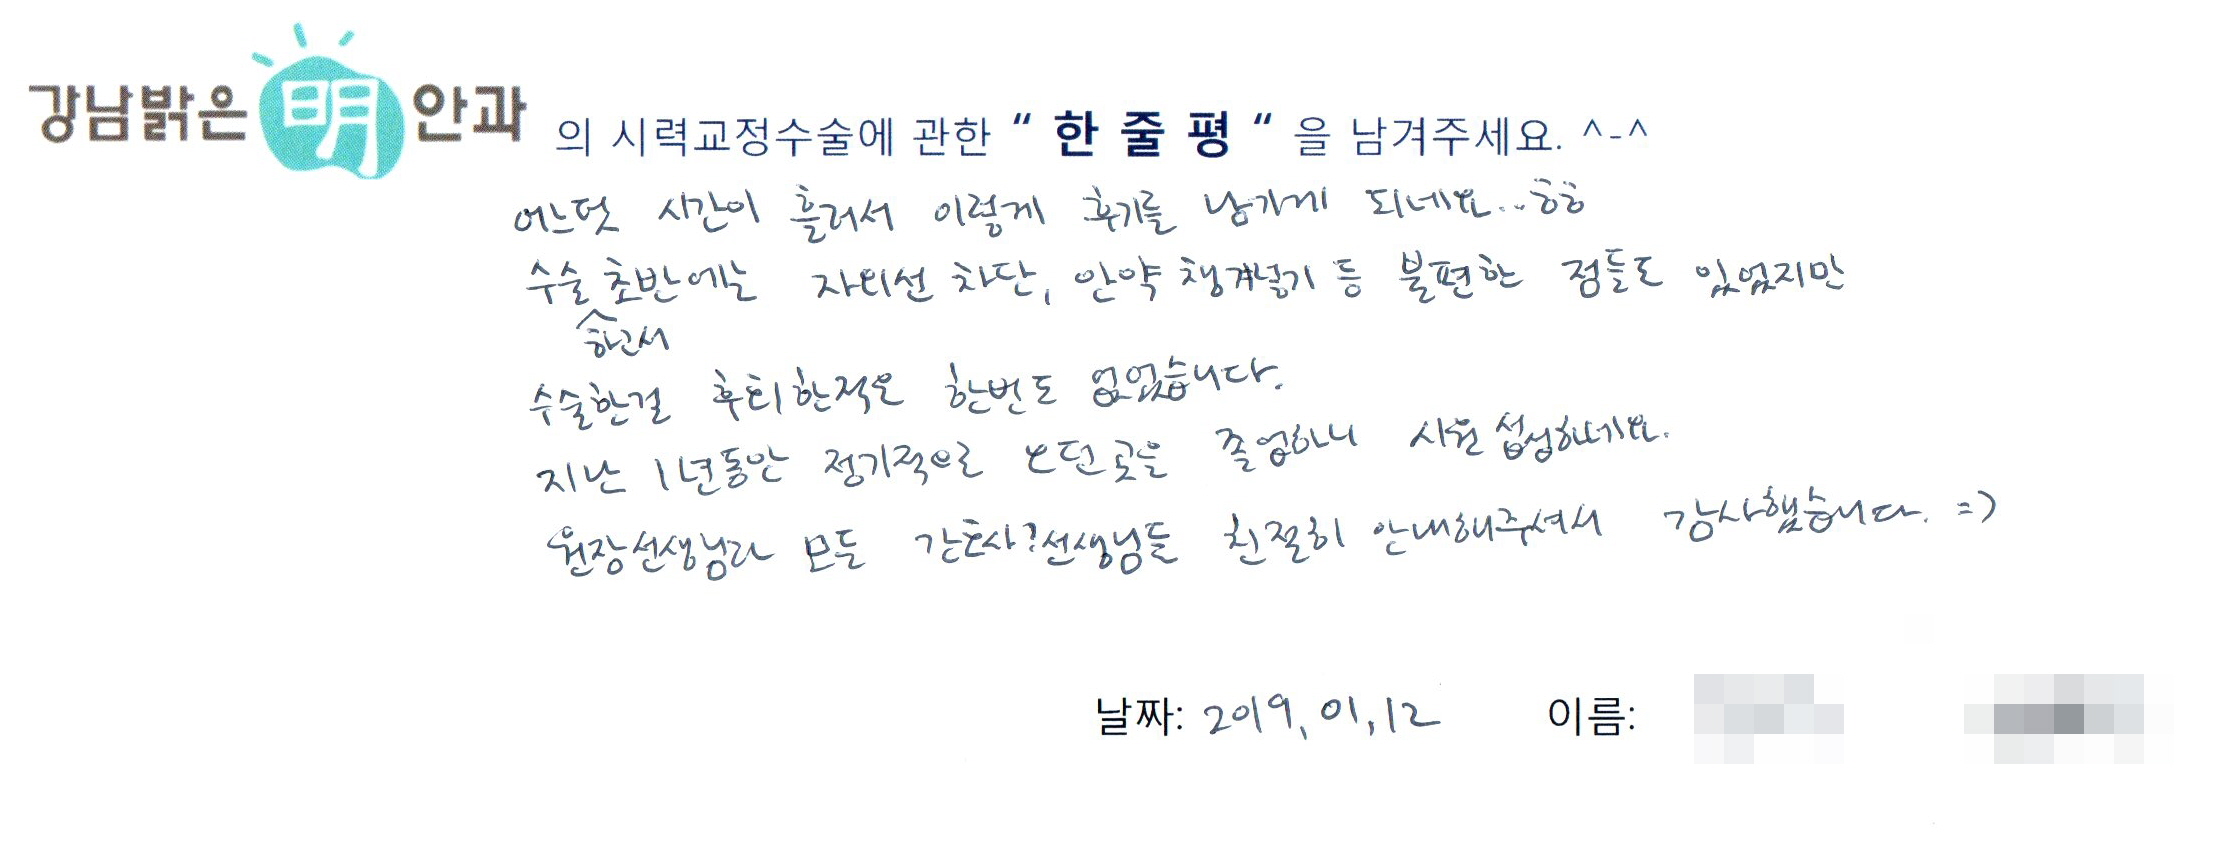 강남밝은 明 안과 의 시력교정수술에 관한 “ 한 줄 평 “ 을 남겨주세요. ^-^
어느덧 시간이 흘러서 이렇게 후기를 남기게 되네요... ㅎㅎ
수술 초반에는 자외선 차단, 안약 챙겨넣기 등 불편한 점들도 있었지만
하고서
수술한걸 후회한적은 한번도 없었습니다.
지난 1년동안 정기적으로 오던 곳을 졸업하니 시원섭섭하네요.
원장선생님과 모든 간호사?선생님들 친절히 안내해주셔서 감사했습니다. =)
날짜: 2019. 01. 12 이름: